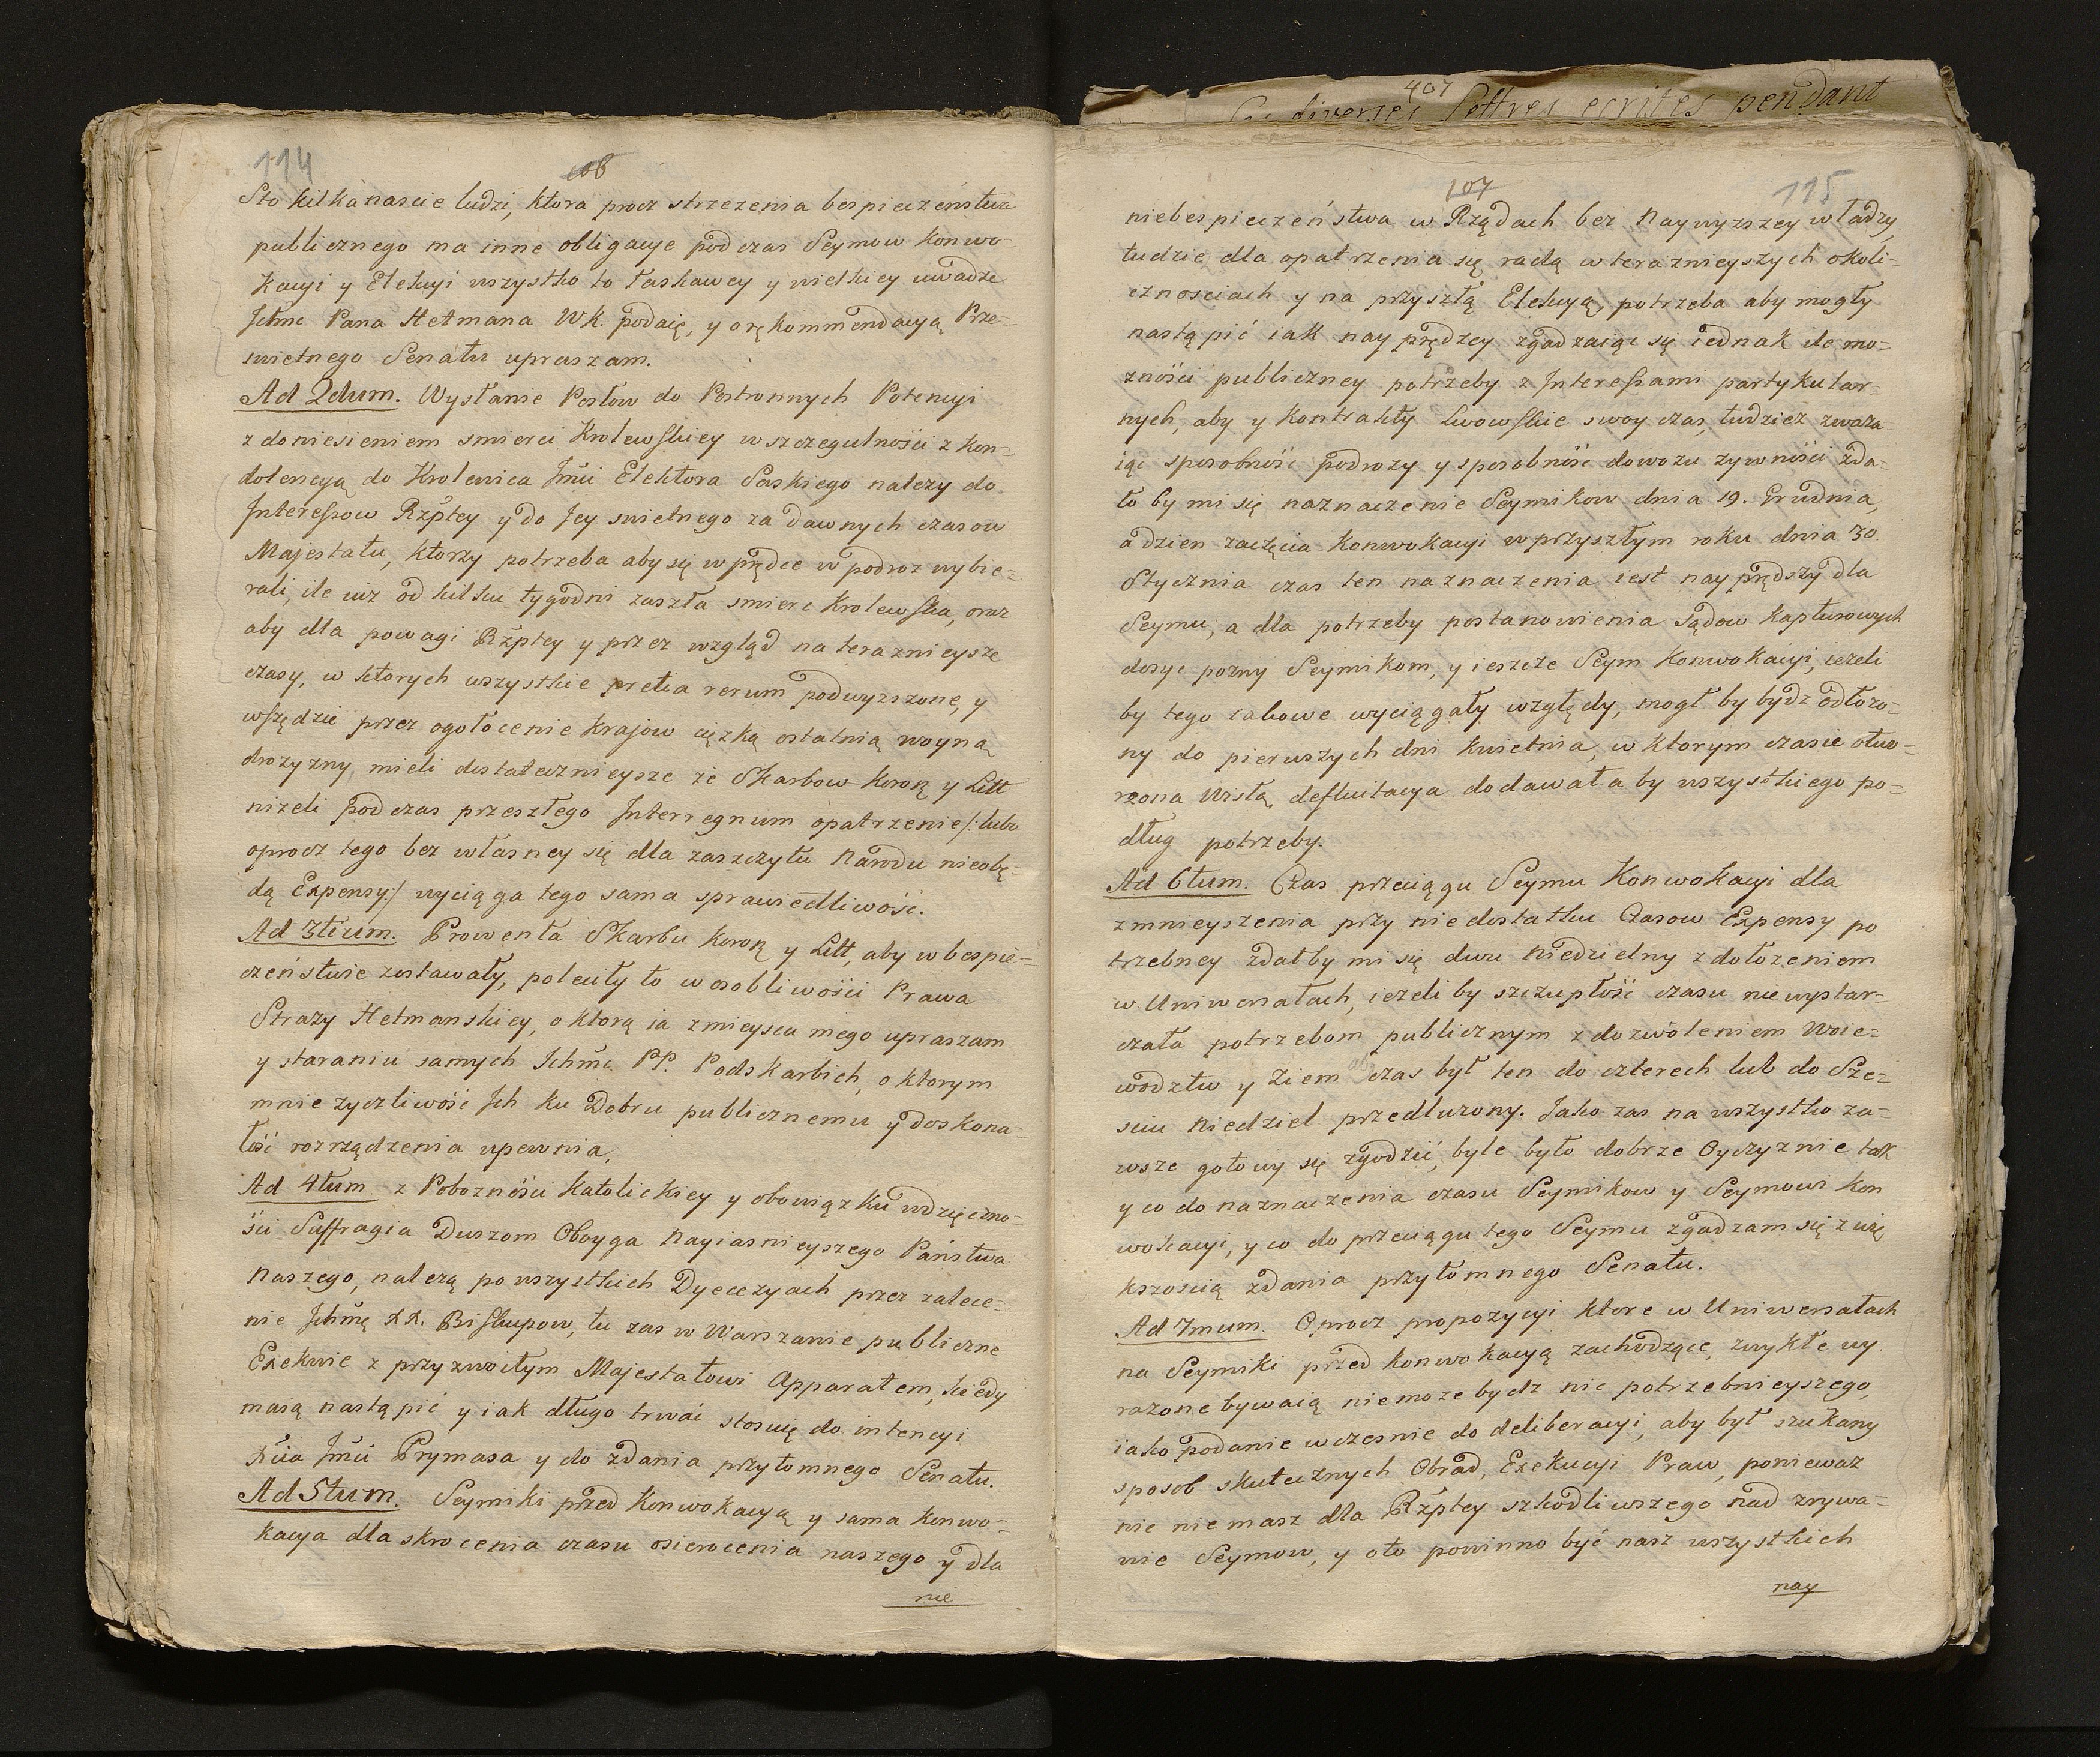 114
106
Sto kilkanascie ludzi, ktora procz strzezenia bespieczeństwa
publicznego ma inne obligacye podczas Seymow Konwo-
kacyi y Elekcyi wszystko to łaskawey y wielkiey uwadze
Jchmc Pana Hetmana WK. podaię, y o rekommendacyą Prze-
swietnego Senatu upraszam.
Ad 2dum. Wysłanie Posłow do Postronnych Potencyi
z doniesieniem smierci Krolewskiey w szczegulności z kon-
dolencyą do Krolewica Jmći Elektora Saskiego nalezy do
Interessow Rzptey y do Jey swietnego za dawnych czasow
Majestatu, ktorzy potrzeba aby się w prędce w podroz wybie-
rali, ile iuz od kilku tygodni zaszła smierc Krolewska, oraz
aby dla powagi Rzptey y przez wzgląd na teraznieysze
czasy, w ktorych wszystkie pretia rerum podwyzszone, y
wszędzie przez ogołocenie krajow cięzką ostatnią woyną
drozyzny, mieli dostatecznieysze ze Skarbow Koron y Litt
nizeli podczas przeszłego Interregnum opatrzenie /: lubo
oprocz tego bez własney się dla zaszczytu Narodu nieobę-
dą Expensy:/ wyciąga tego sama sprawiedliwość.
Ad 3tium. Prowenta Skarbu Koron y Litt, aby w bespie-
czeństwie zostawały, poleciły to w osobliwości Prawa
Strazy Hetmanskiey, o ktorą ia z mieysca mego upraszam
y staraniu samych Ichmc PP. Podskarbich, o ktorym
mnie zyczliwośc Jch ku Dobru publicznemu y doskona-
łość rozrządzenia upewnia,
Ad 4tum z Pobozności Katolickiey y obowiązku wdzięczno-
ści Suffragia Duszom Oboyga Nayiasnieyszego Państwa
Naszego, nalezą po wszystkich Dyecezyach przez zalece-
nie Jchmę XX. Biskupow, tu zas w Warszawie publiczne
Exekwie z przyzwoitym Majestatowi Apparatem, kiedy
maią nastąpić y iak długo trwać stosuię do intencyi
Xcia Jmći Prymasa y do zdania przytomnego Senatu.
Ad 5tum. Seymiki przed Konwokacyą y sama Konwo-
kacya dla skrocenia czasu osierocenia naszego y dla
nie
407
diverses Lettres ecrites pendant
107
115
niebespieczeństwa w Rządach bez Naywyzszey władzy
tudzie dla opatrzenia się radą w teraznieyszych okoli-
cznosciach y na przyszłą Elekcyą, potrzeba aby mogły
nastąpić iak nayprędzey zgadzaiąc się iednak ile mo-
zności publiczney potrzeby z Interessami partykular-
nych, aby y Kontrakty Lwowskie swoy czas, tudziez zwaza-
iąc sposobność podrozy y sposobność dowozu zywności zda-
ło by mi się naznaczenie Seymikow dnia 19. Grudnia,
a dzien zaczęcia Konwokacyi w przyszłym roku dnia 30.
Stycznia czas ten naznaczenia iest nayprędszy dla
Seymu, a dla potrzeby postanowienia Sądow Kapturowych
dosyc pozny Seymikom, y ieszcze Seym Konwokacyi, iezeli
by tego iakowe wyciągały względy, mogł by bydz odłozo-
ny do pierwszych dni Kwietnia, w ktorym czasie otwo-
rzona Wisłą defluitacya dodawała by wszystkiego po-
dług potrzeby.
Ad 6tum. Czas przeciągu Seymu Konwokacyi dla
zmnieyszenia przy niedostatku Czasow Expensy po
trzebney zdałby mi się dwu Niedzielny z dołozeniem
w Uniwersałach, iezeli by szczupłość czasu niewystar-
czała potrzebom publicznym z dozwoleniem Woie-
wodztw y Ziem ab czas był ten do czterech lub do Sze-
sciu Niedziel przedłuzony. Jako zas na wszystko za-
wsze gotowy się zgodzić, byle było dobrze Oyczyznie tak
y co do naznaczenia czasu Seymikow y Seymowi Kon
wokacyi, y co do przeciągu tego Seymu zgadzam się z wię
kszoscią zdania przytomnego Senatu.
Ad 7mum. Oprocz propozycyi ktore w Uniwersałach
na Seymiki przed Konwokacyą zachodzące, zwykłe wy
razone bywaią niemoze bydz nic potrzebnieyszego,
iako podanie wczesnie do deliberacyi, aby był szukany
sposob skutecznych Obrad, Exekucyi Praw, poniewaz
nic nie masz dla Rzptey szkodliwszego nad zrywa-
nie Seymow, y oto powinno być nasz wszystkich
nay